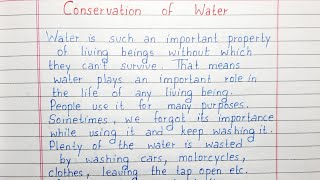 Conservation of Water
Water is such an important property
of living beings without which
they can't survive. That means
water plays an important role in
the life of any living being.
People use it for many purposes.
Sometimes, we forgot its importance
while using it and keep washing it.
Plenty of the water is wasted
by washing cars, motorcycles,
clothes, leaving the tap open etc.